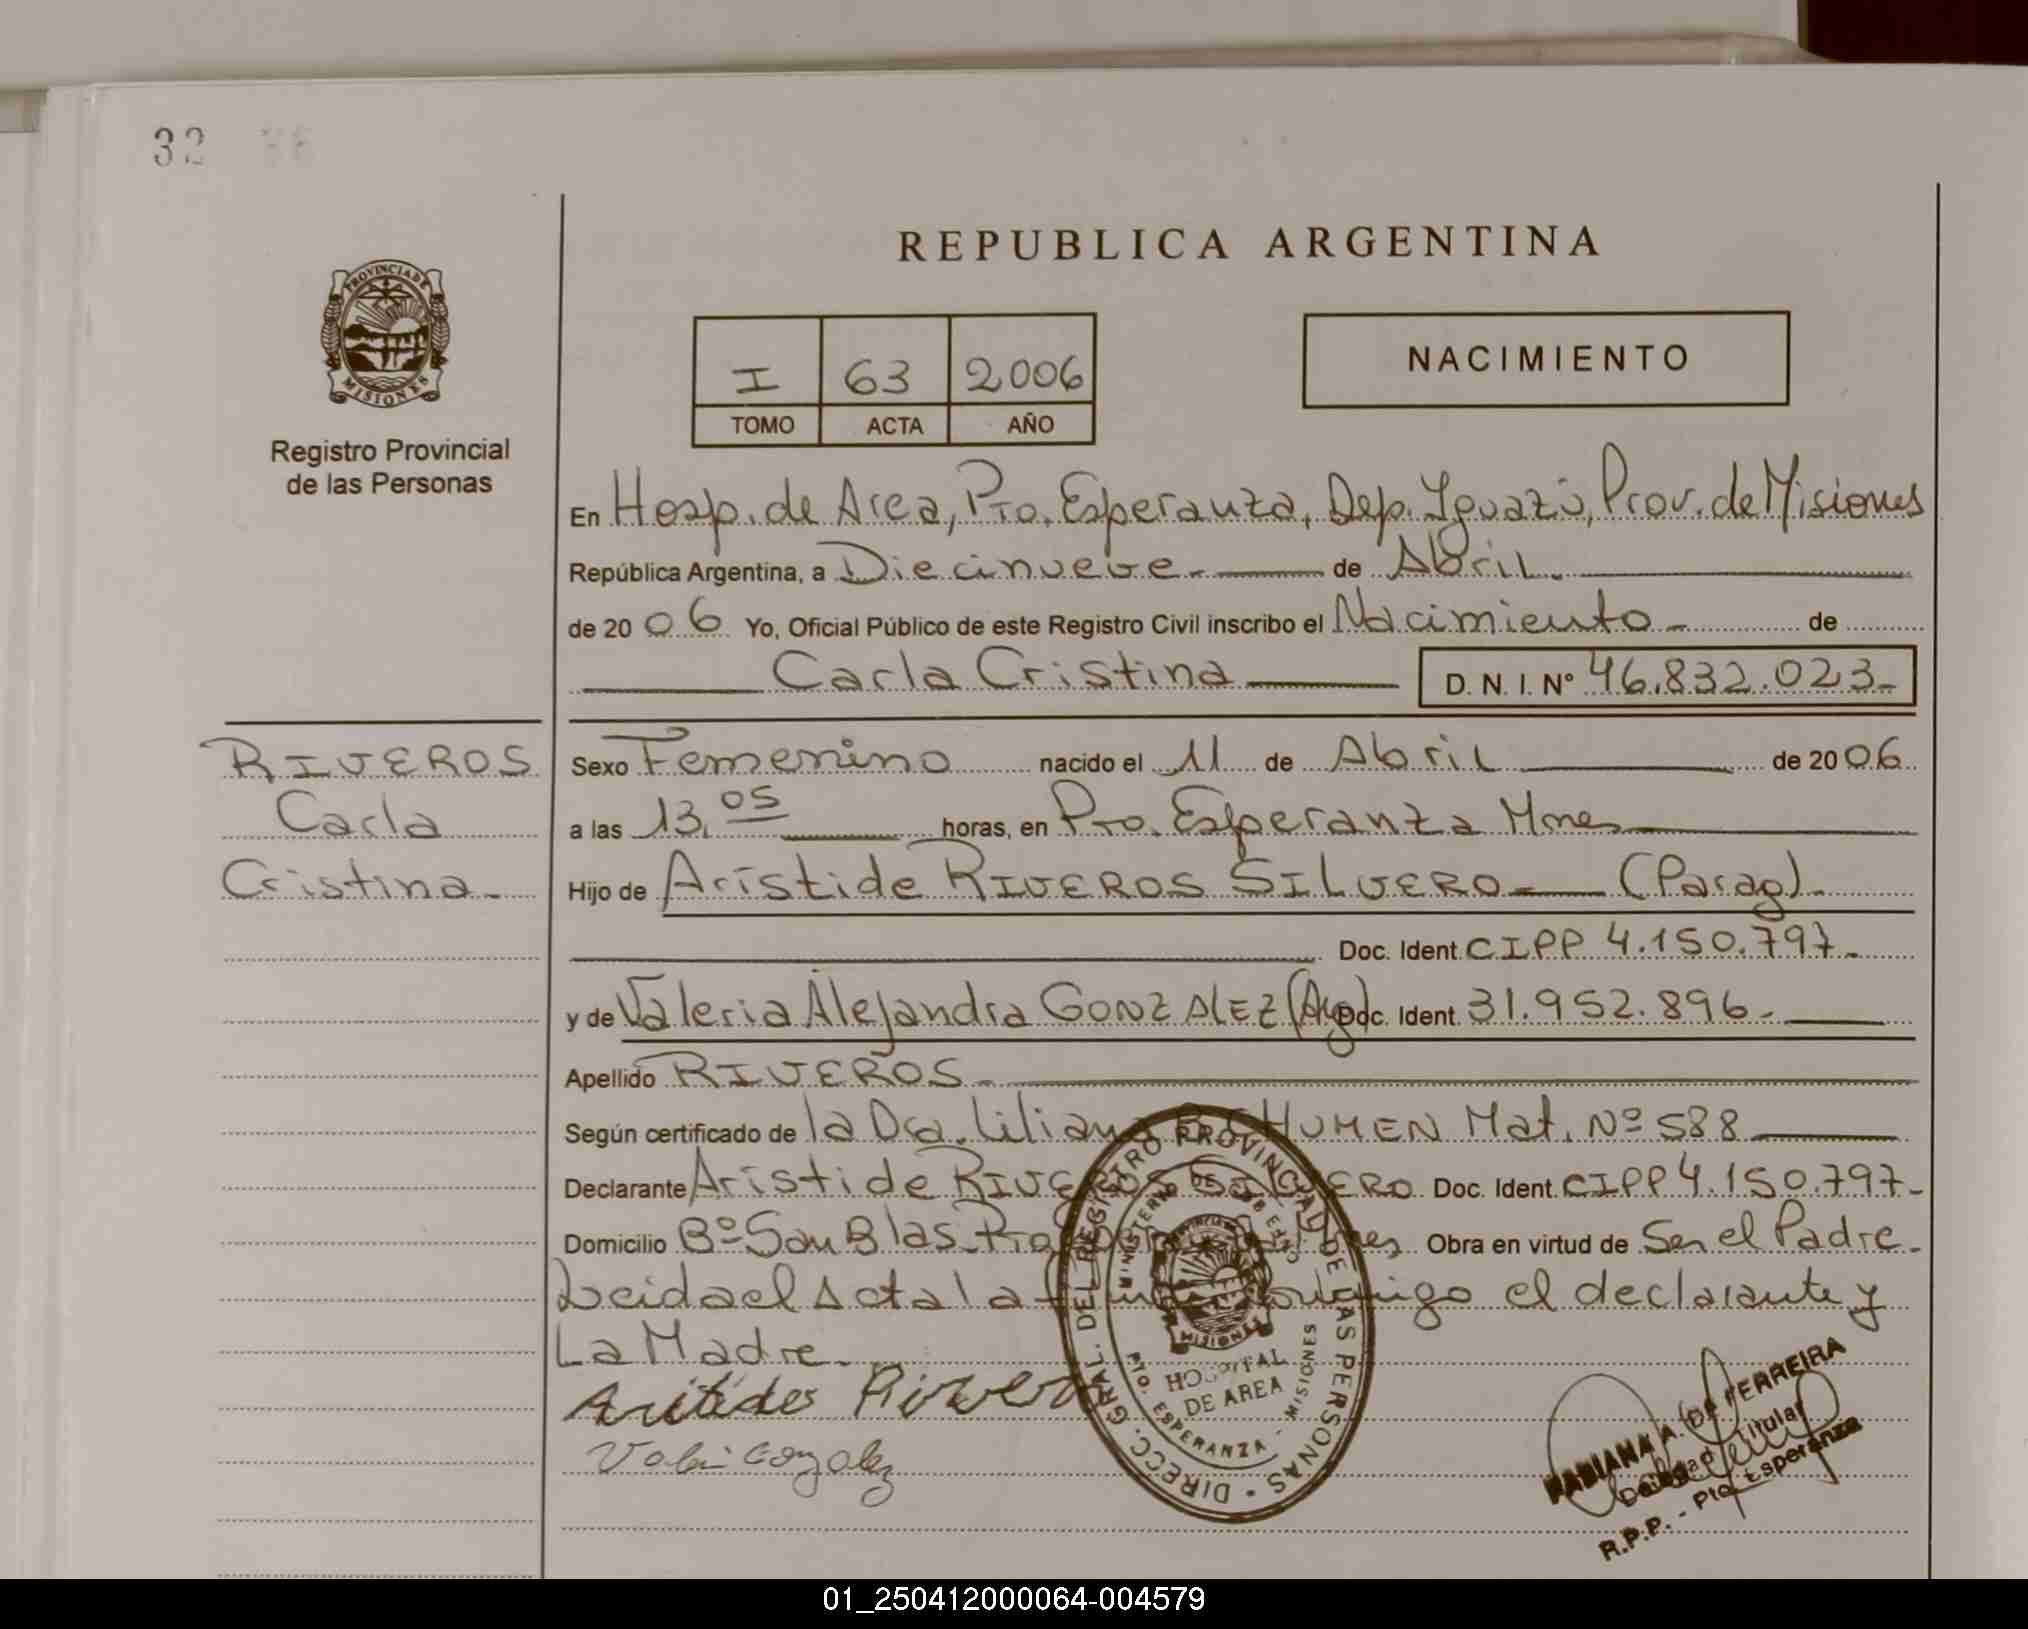 32
REPUBLICA ARGENTINA
PROVINCIA DE
MISIONES
Registro Provincial
de las Personas
I 63 2006
TOMO ACTA AÑO
NACIMIENTO
En Hosp. de Area, Pto. Esperanza, Dep. Iguazú, Prov. de Misiones
República Argentina, a Diecinueve. de Abril.
de 2006 Yo, Oficial Público de este Registro Civil inscribo el Nacimiento de
Carla Cristina D. N. I. N° 46.832.023-
RIVEROS
Carla
Cristina-
Sexo Femenino nacido el 11 de Abril de 2006
a las 13,05 horas, en Pto. Esperanza Mnes
Hijo de Arístide RIVEROS SILVERO (Parag).
Doc. Ident. CIPP 4.150.797-
y de Valeria Alejandra GONZALEZ (Arg) Doc. Ident. 31.952.896-
Apellido RIVEROS.
Según certificado de la Dra. Liliana HUMEN Mat. Nº 588
Declarante Arístide RIVEROS SILVERO Doc. Ident. CIPP 4.150.797-
Domicilio Bº San Blas. Pto. Mnes Obra en virtud de Ser el Padre-
Leida el Acta la conmigo el declarante y
La Madre.
Aritides River
DIRECC. GRAL. DEL REGISTRO PROVINCIAL DE LAS PERSONAS
MINISTERIO DE GOBIERNO
MISIONES
HOSPITAL
DE AREA
PTO. ESPERANZA - MISIONES
FABIANA A. DE FERREIRA
Titular
R.P.P. - Pto. Esperanza
01_250412000064-004579